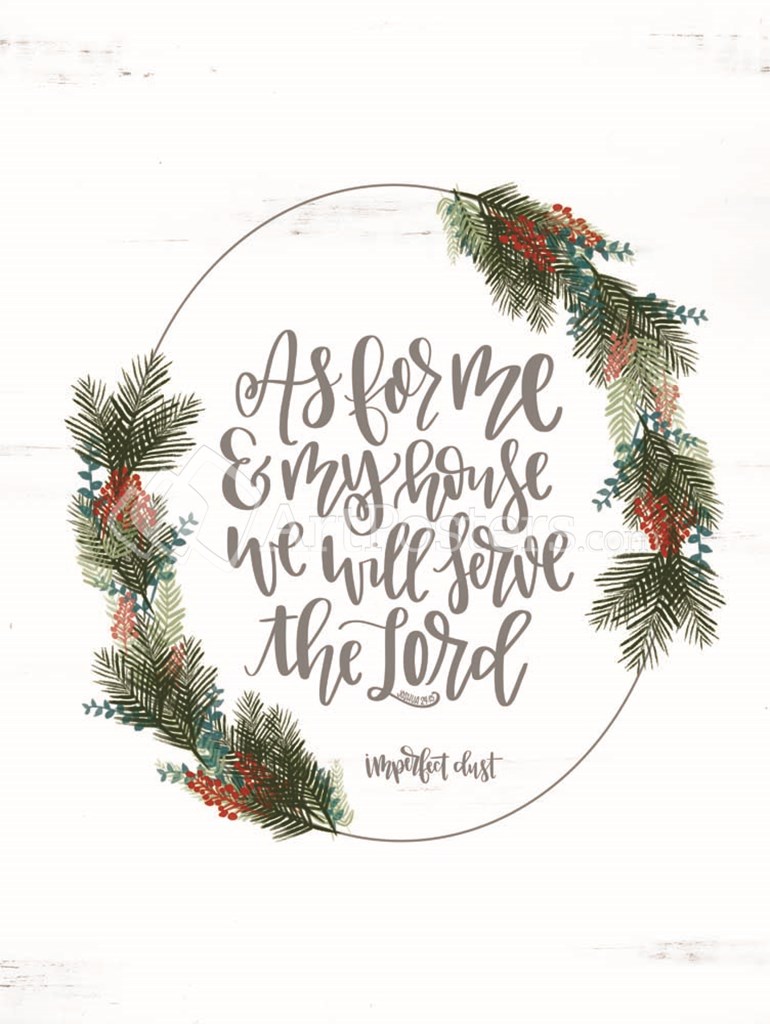 As for me
& my house
we will serve
the Lord
Joshua 24:15
imperfect dust
ArtPosters.com